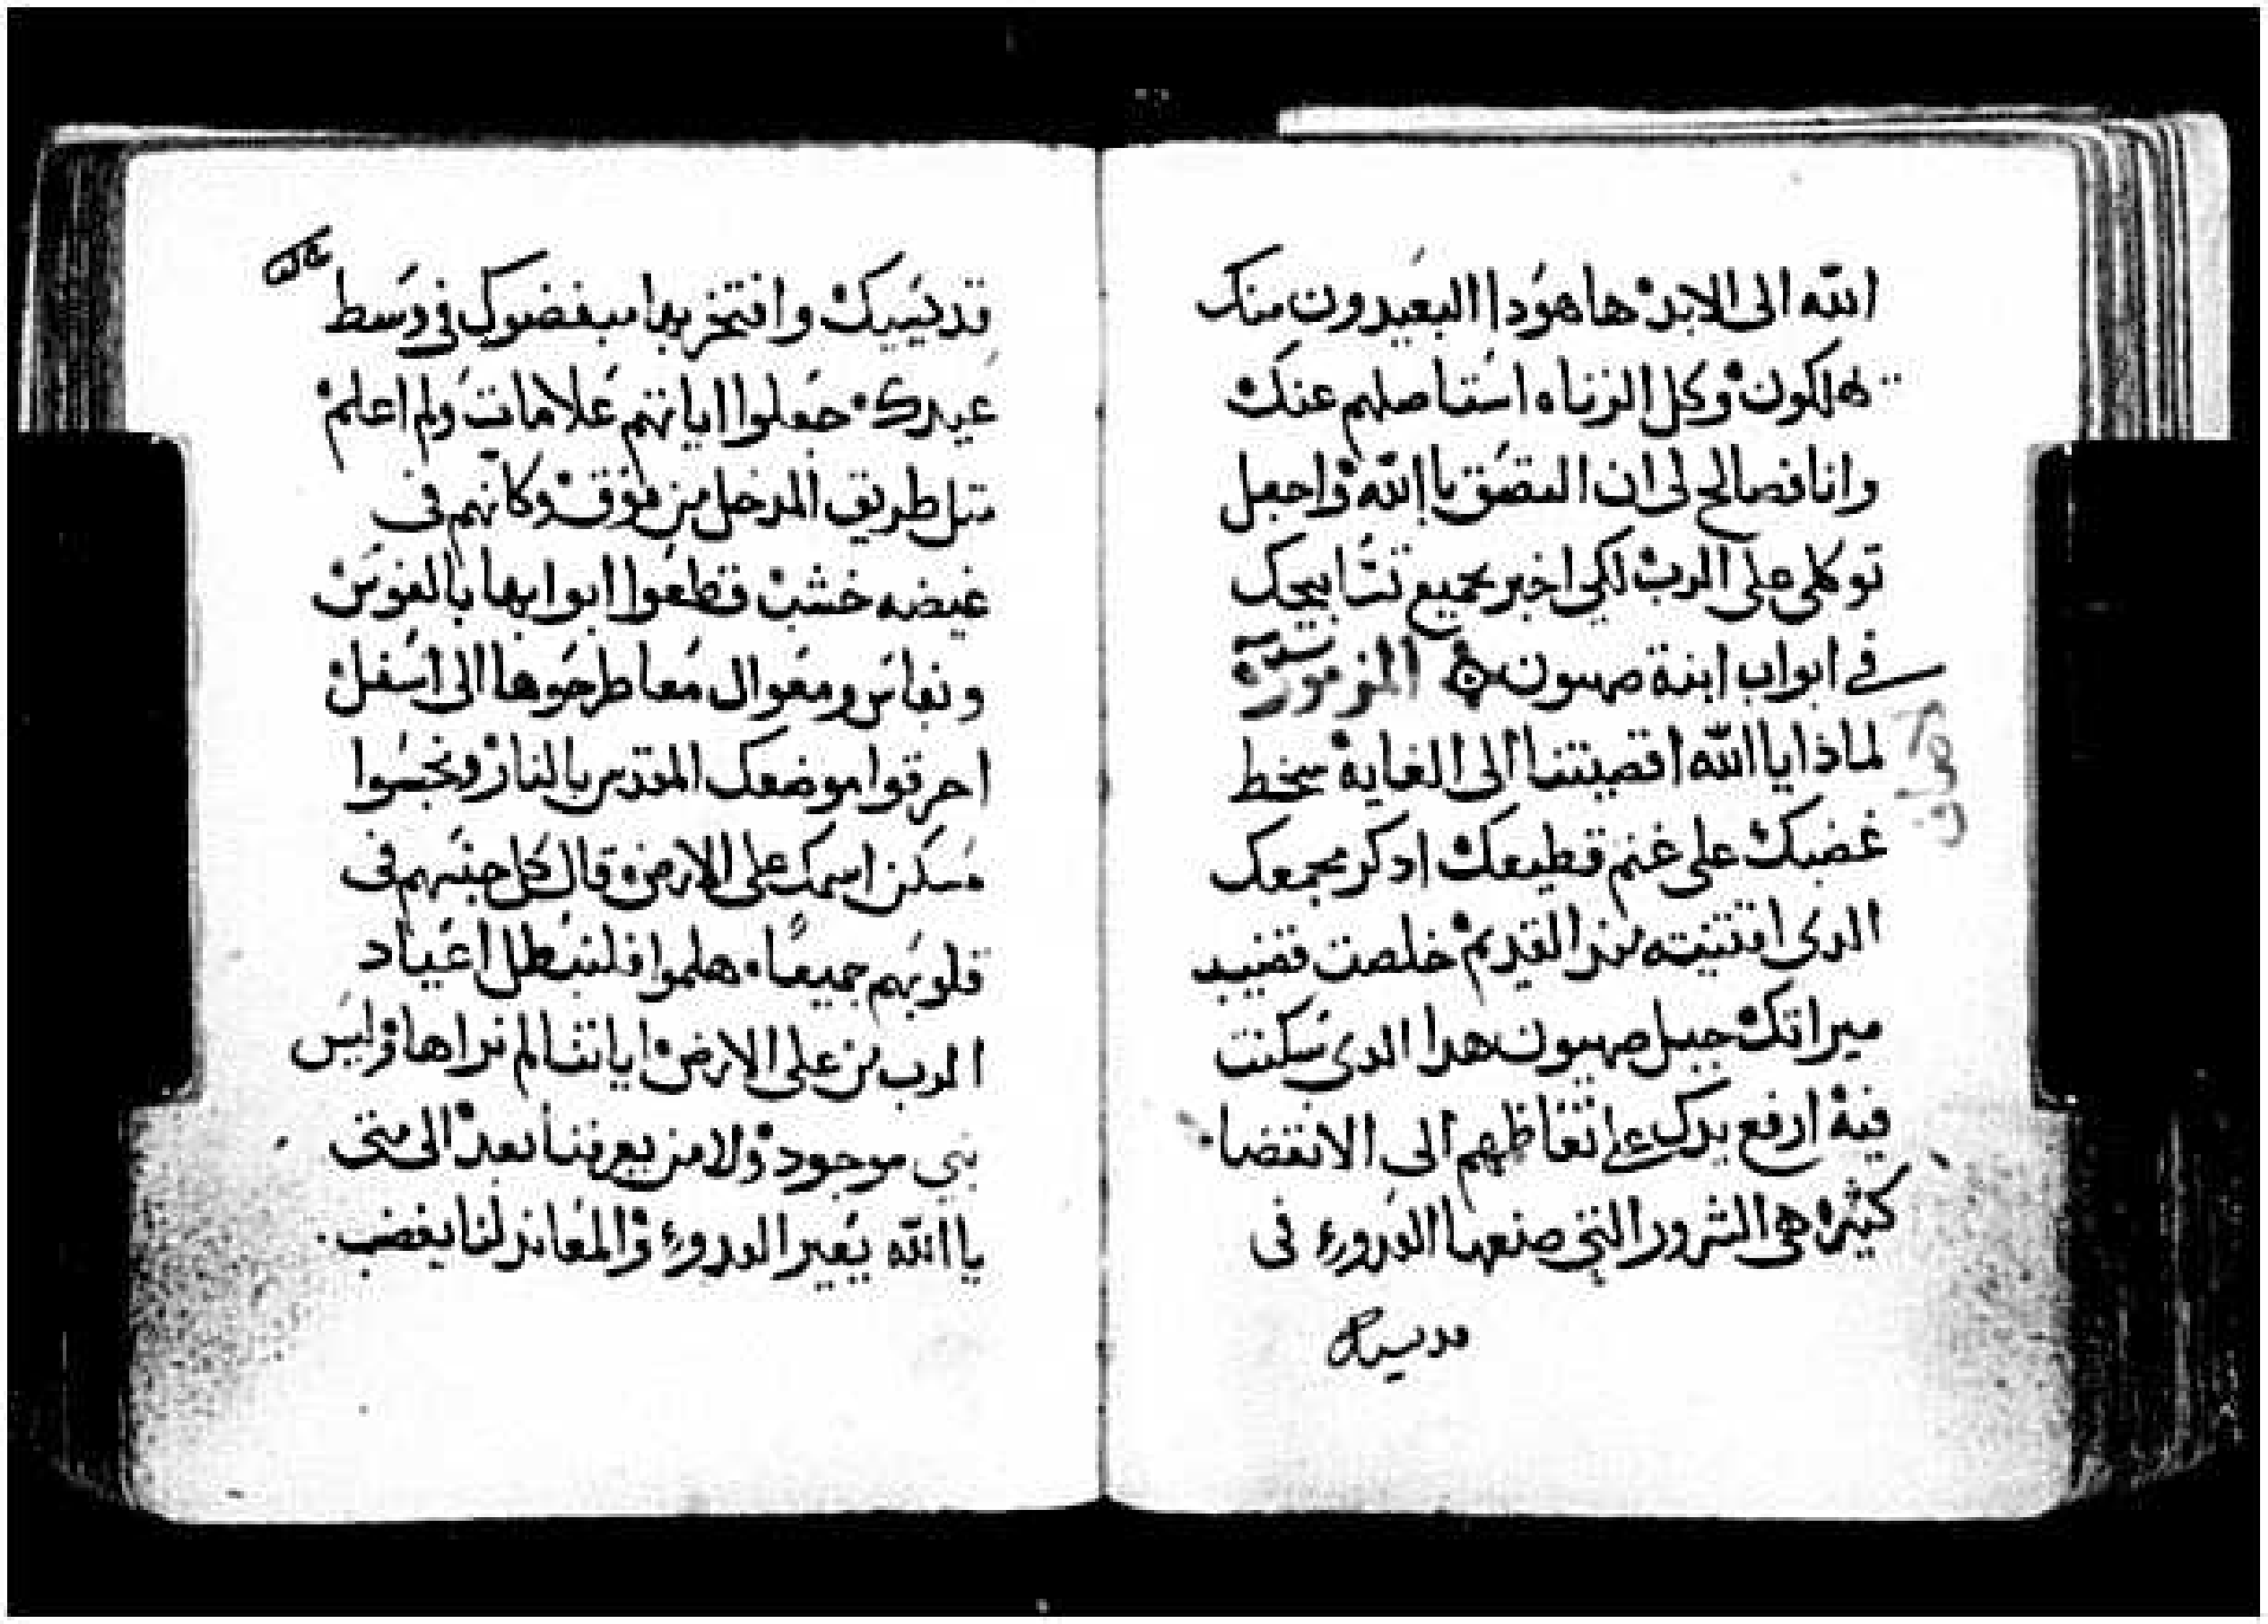 الله الى الابد ها هودا البعيدون منك
يهلكون وكل الزناه استاصلهم عنك
وانا فصالح لى ان التصق باالله واجعل
توكلى على الرب لكي اخبر بجميع تسابيحك
في ابواب ابنة صهيون المزمور
لماذا ياالله اقصيتنا الى الغاية سخط
غضبك على غنم قطيعك ادكر مجمعك
الدى اقتنيته منذ القديم خلصت قضيب
ميراتك جبل صهيون هدا الدى سكنت
فيه ارفع يدك على تعاظمهم الى الانقضا
كثيره هى الشرور التي صنعها العدو في
قديسيك
اصاف
قديسيك وافتخر بها مبغضوك في وسط
عيدك جعلوا اياتهم علامات ولم اعلم
متل طريق المدخل من فوق وكانهم فى
غيضه خشب قطعوا ابوابها بالفوس
وبفاس ومعوال معا طرحوها الى اسفل
احرقوا موضعك المقدس بالنار ونجسوا
مسكن اسمك على الارض وقال كل جنسهم فى
قلوبهم جميعًا هلموا فلنبطل اعياد
الرب من على الارض اياتنا لم نراها وليس
نبي موجود ولا من يعرفنا بعد الى متى
ياالله يعير العدو والمعاند لنا يغضب